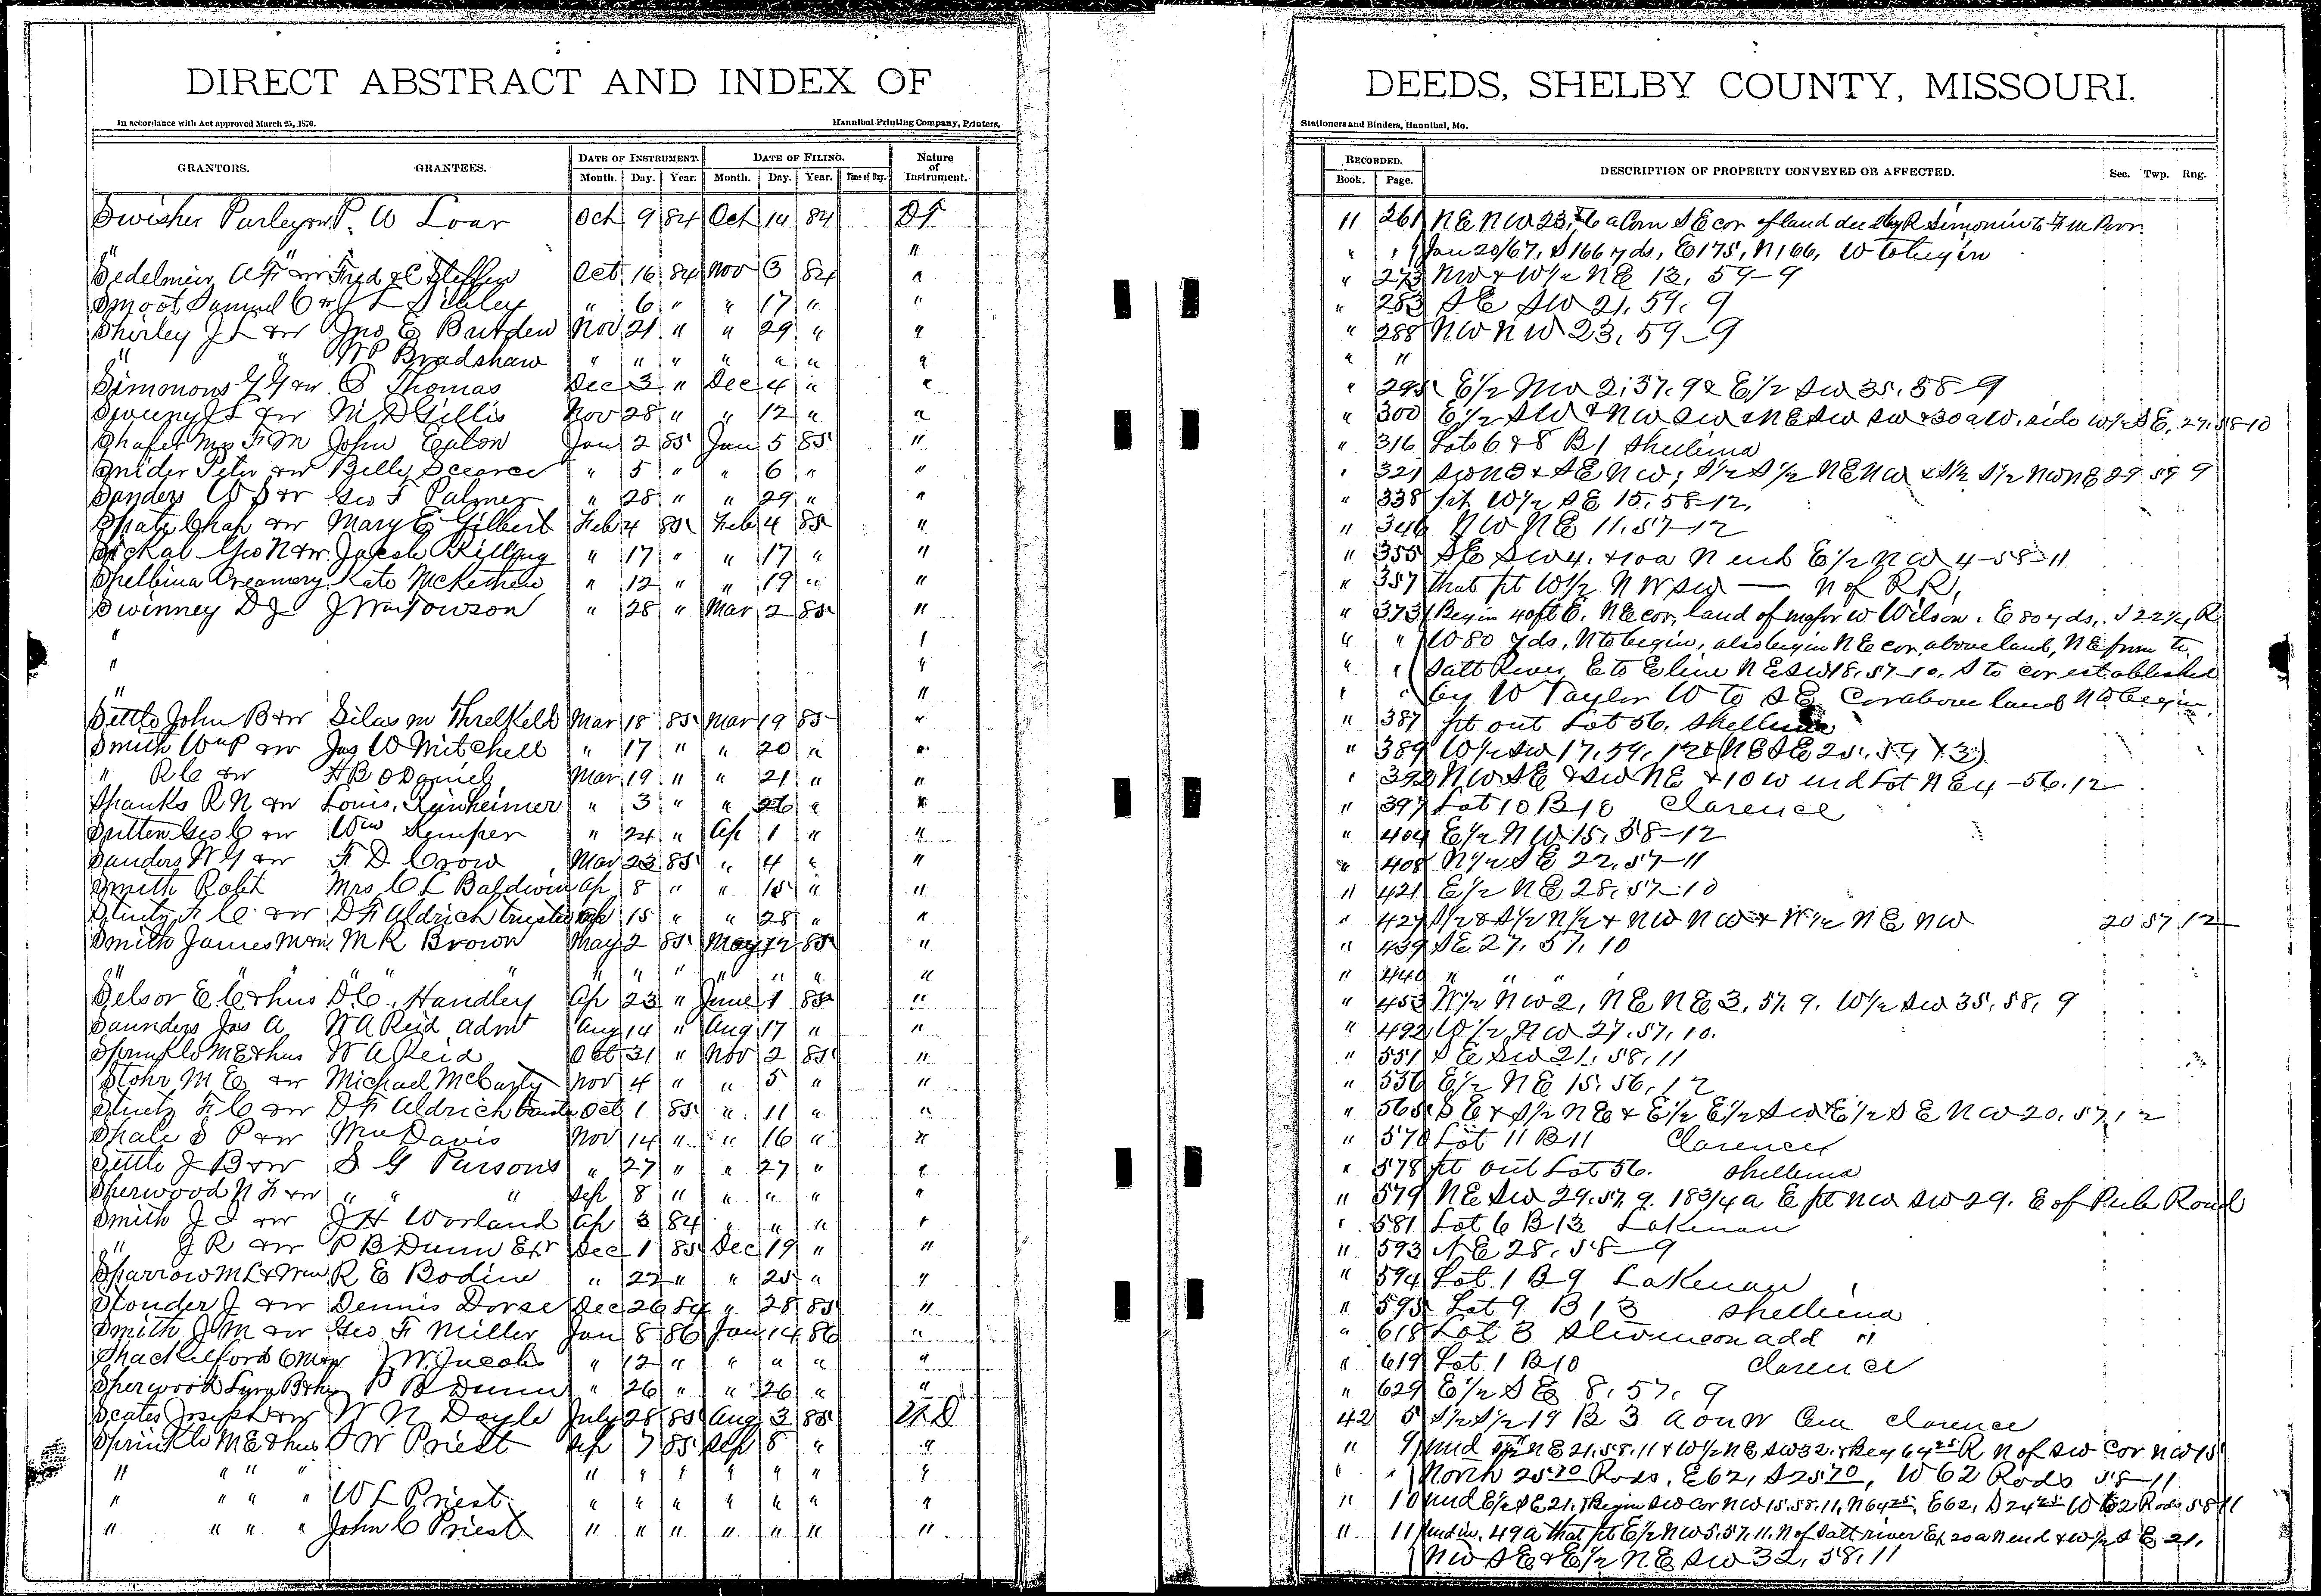 DIRECT ABSTRACT AND INDEX OF
In accordance with Act approved March 25, 1870. Hannibal Printing Company, Printers,
GRANTORS. GRANTEES. DATE OF INSTRUMENT. DATE OF FILING. Nature of Instrument.
Month. Day. Year. Month. Day. Year. Time of Day.
Swisher Purley P. W Loar Oct 9 84 Oct 14 84 DT
" "
Sedelmeir A F &w Fred & C Steffen Oct 16 84 Nov 3 84 "
Smoot Samuel C L Sibley " 6 " " 17 " "
Shirley J L &w Jno E Burden Nov 21 " " 29 " "
" " W P Bradshaw " " " " " " "
Simmons &w C Thomas Dec 3 " Dec 4 " "
Sweeny J S &w M D Gillis Nov 28 " " 12 " "
Shafer Mrs F M John Eaton Jan 2 85 Jan 5 85 "
Snider Peter &w Belle Scearce " 5 " " 6 " "
Sanders W S &w Geo F Palmer " 28 " " 29 " "
Spate Chas &w Mary E Gilbert Feb 4 85 Feb 4 85 "
Sickal Geo N &w Jacob " 17 " " 17 " "
Shelbina Creamery Kate " 12 " " 19 " "
Swinney D J J Wm Towson " 28 " Mar 2 85 "
" "
" "
" "
Settle John B &w Silas M Threlkeld Mar 18 85 Mar 19 85 "
Smith Wm P &w Jas W Mitchell " 17 " " 20 " "
" R C &w H B O Daniel Mar 19 " " 21 " "
Shanks R N &w Louis " 3 " " 26 " "
Sutten Geo C &w Wm Kemper " 24 " Ap 1 " "
Sanders W G &w F D Crow Mar 23 85 " 4 " "
Smith Robt Mrs C L Baldwin Ap 8 " " 15 " "
Stuetz F C &w D F Aldrich trustee Ap 15 " " 28 " "
Smith James M &w M K Brown May 2 85 May 12 85 "
" " " " " " " " " " " "
Selsor E C & hus D. C. Handley Ap 23 " June 1 85 "
Saunders Jas A W A Reid admr Aug 14 " Aug 17 " "
Sprinkle M E & hus W A Reid Oct 31 " Nov 2 85 "
Stohr M E &w Michael McCarty Nov 4 " " 5 " "
Stuetz F C &w D F Aldrich Oct 1 85 " 11 " "
Shale S P &w Wm Davis Nov 14 " " 16 " "
Settle J B &w S G Parsons " 27 " " 27 " "
Sherwood N F &w " " " Sep 8 " " " " "
Smith J S &w J H Worland Ap 3 84 " " " "
" J R &w P B Dunn Exr Dec 1 85 Dec 19 " "
Sparrow M L & Wm R E Bodine " 22 " " 25 " "
Stouder J &w Dennis Dorse Dec 26 84 " 28 85 "
Smith J M &w Geo F Miller Jan 8 86 Jan 14 86 "
Shackelford C M &w J W. Jacobs " 12 " " " " "
Sherwood Lyra B & hus P B Dunn " 26 " " 26 " "
Scates Joseph &w W N Doyle July 28 85 Aug 3 85 W D
Sprinkle M E & hus J W Priest Sep 7 85 Sep 8 " "
" " " " " " " " " " "
" " " " W L Priest " " " " " " "
" " " " John C Priest " " " " " " "
DEEDS, SHELBY COUNTY, MISSOURI.
Stationers and Binders, Hannibal, Mo.
RECORDED. DESCRIPTION OF PROPERTY CONVEYED OR AFFECTED. Sec. Twp. Rng.
Book. Page.
11 261 NE NW 23, SE cor of land
" " Jan 20/67, S 166 yds, E 175, N 166, W to begin
" 273 NW & W 1/2 NE 13, 59-9
" 283 SE SW 21, 59, 9
" 288 NW NW 23, 59-9
" "
" 295 E 1/2 2, 57, 9 & E 1/2 SW 35, 58-9
" 300 E 1/2 SW & NW SW & NE SW SW & 30 a W. side W 1/2 SE, 27, 58-10
" 316 Lots 6 & 8 B 1 Shelbina
" 321 SW NE & SE NW; S 1/2 S 1/2 NE NW & S 1/2 S 1/2 NW NE 29 59 9
" 338 pt W 1/2 SE 15, 58-12.
" 346 NW NE 11, 57-12
" 355 SE SW 4, & 10a N end E 1/2 NW 4-58-11
" 357 that pt W 1/2 NW SW — N of RR,
" 373 Begin 40 ft E. NE cor, land of Major W Wilson. E 80 yds, S 22 1/4 R
" " W 80 yds, N to begin, also begin NE cor, above land, NE from to
" " Salt River, E to E line NE SW 18, 57-10, S to cor established
" " by W Taylor W to SE Cor above land N to begin.
" 387 pt out Lot 56, Shelbina
" 389 W 1/2 SW 17, 59, 12 & (NE SE 25, 59 13)
" 392 NW SE & SW NE & 10 W end Lot NE 4-56, 12
" 397 Lot 10 B 10 Clarence
" 404 E 1/2 NW 15, 58-12
" 408 N 1/2 SE 22, 57-11
" 421 E 1/2 NE 28, 57-10
" 427 S 1/2 & S 1/2 N 1/2 & NW NW & W 1/2 NE NW 20 57 12
" 439 SE 27, 57, 10
" 440 " " "
" 453 W 1/2 NW 2, NE NE 3, 57, 9. W 1/2 SW 35, 58, 9
" 492 W 1/2 NW 27, 57, 10.
" 551 SE SW 21, 58, 11
" 556 E 1/2 NE 15, 56, 12
" 565 SE & S 1/2 NE & E 1/2 E 1/2 SW & E 1/2 SE NW 20, 57, 12
" 570 Lot 11 B 11 Clarence
" 578 pt out Lot 56. Shelbina
" 579 NE SW 29, 57, 9. 18 3/4 a E pt NW SW 29. E of Pub Road
" 581 Lot 6 B 13 Lakenan
" 593 NE 28, 58-9
" 594 Lot 1 B 9 Lakenan
" 595 Lot 9 B 13 Shelbina
" 618 Lot 3 add "
" 619 Lot 1 B 10 Clarence
" 629 E 1/2 SE 8, 57, 9
42 5 S 1/2 S 1/2 19 B 3 Cem Clarence
" 9 und NE 21, 58, 11 & W 1/2 NE SW 32, & Beg 64 25 R N of SW cor NW 15
" " North 25 70 Rods, E 62, S 25 70, W 62 Rods 58-11
" 10 und E 1/2 SE 21, Begin SW Cor NW 15, 58, 11, N 64 25, E 62, S 24 25 W 62 Rods 58 11
" 11 49 a that pt E 1/2 NW 5, 57, 11, N of Salt river Ex 20 a N end & W 1/2 SE 21,
NW SE & E 1/2 NE SW 32, 58, 11